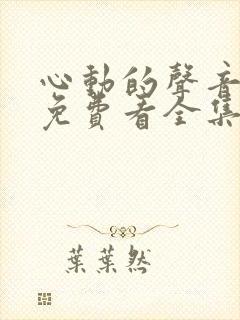 心動的聲音
免費看全集
葉葉然